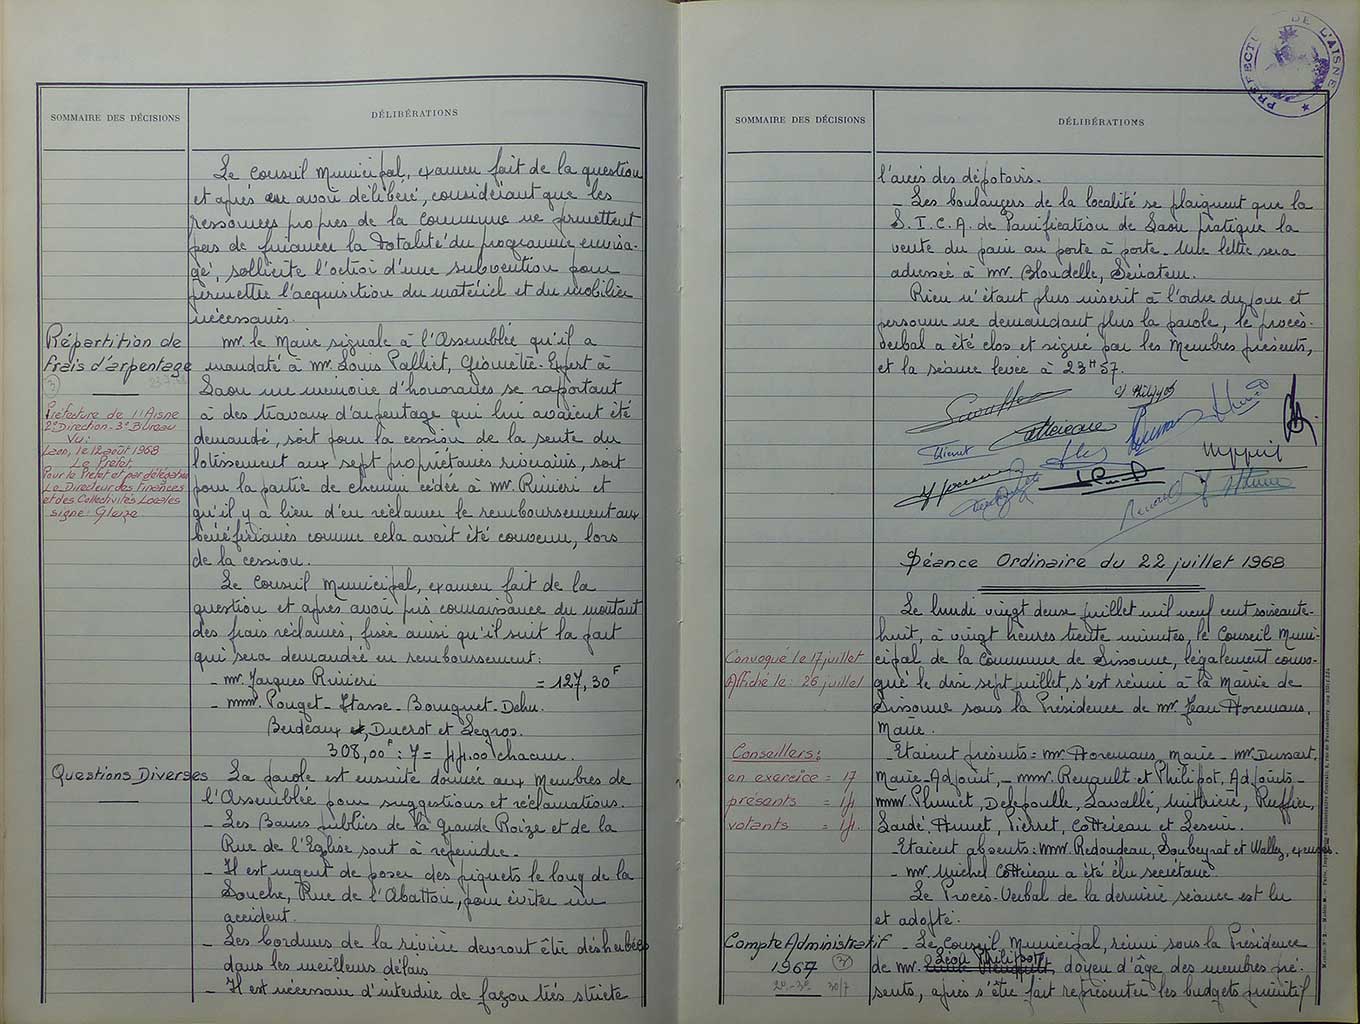 SOMMAIRE DES DÉCISIONS
DÉLIBÉRATIONS
Le Conseil Municipal, examen fait de la question
et après en avoir délibéré, considérant que les
ressources propres de la Commune ne permettent
pas de financer la totalité du programme envisa-
gé, sollicite l'octroi d'une subvention pour
permettre l'acquisition du matériel et du mobilier
nécessaires.
Répartition de
frais d'arpentage
3
Préfecture de l'Aisne
2e Direction - 3e Bureau
Vu:
Laon, le 12 août 1968
Le Préfet,
Pour le Préfet et par délégation
Le Directeur des Finances
et des Collectivités Locales
signé: Gleize
Mr. le Maire signale à l'Assemblée qu'il a
mandaté à Mr. Louis Palliet, Géomètre-Expert à
Laon un mémoire d'honoraires se rapportant
à des travaux d'arpentage qui lui avaient été
demandé, soit pour la cession de la sente du
lotissement aux sept propriétaires riverains, soit
pour la partie de chemin cédée à Mr. Rivieri et
qu'il y a lieu d'en réclamer le remboursement aux
bénéficiaires comme cela avait été convenu, lors
de la cession.
Le Conseil Municipal, examen fait de la
question et après avoir pris connaissance du montant
des frais réclamés, fixe ainsi qu'il suit la part
qui sera demandée en remboursement:
- Mr. Jacques Rivieri = 127,30 F
- Mmrs. Pouget - Hasse - Bouquet - Dehu
Berdeaux, Ducrot et Legros.
308,00 F : 7 = 44,00 chacun.
Questions Diverses
La parole est ensuite donnée aux Membres de
l'Assemblée pour suggestions et réclamations.
- Les Bancs publics de la Grande Roize et de la
Rue de l'Eglise sont à repeindre.
- Il est urgent de poser des piquets le long de la
Souche, Rue de l'Abattoir, pour éviter un
accident.
- Les bordures de la rivière devront être désherbées
dans les meilleurs délais
- Il est nécessaire d'interdire de façon très stricte
PREFECTURE DE L'AISNE
SOMMAIRE DES DÉCISIONS
DÉLIBÉRATIONS
l'accès des dépotoirs.
- Les boulangers de la localité se plaignent que la
S.I.C.A. de Panification de Laon pratique la
vente du pain au porte à porte. Une lettre sera
adressée à Mr. Blondelle, Sénateur.
Rien n'étant plus inscrit à l'ordre du jour et
personne ne demandant plus la parole, le procès-
verbal a été clos et signé par les Membres présents,
et la séance levée à 23H57.
Séance Ordinaire du 22 juillet 1968
Le lundi vingt deux juillet mil neuf cent soixante-
huit, à vingt heures trente minutes, le Conseil Muni-
Convoqué le 17 juillet
Affiché le: 26 juillet
cipal de la Commune de Sissonne, légalement convo-
qué le dix sept juillet, s'est réuni à la Mairie de
Sissonne sous la Présidence de Mr. Jean Horemans,
Maire.
Conseillers:
en exercice = 17
présents = 14
votants = 14.
- Etaient présents = Mr. Horemans, Maire - Mr. Dussart,
Maire-Adjoint, - Mmrs. Renault et Philipot, Adjoints -
Mmrs. Plumet, Defepoulle, Lavallé, Mithière, Ruffier,
Lardé, Hunet, Pierret, Cottereau et Leserre.
- Etaient absents: Mmrs. Redoudeau, Soubeyrat et Wallez, excusés.
- Mr. Michel Cottereau a été élu secrétaire
Le Procès-Verbal de la dernière séance est lu
et adopté.
Compte Administratif
1967
- Le Conseil Municipal, réuni sous la Présidence
Léon Philipot
de Mr. doyen d'âge des membres pré-
sents, après s'être fait représenter les budgets primitif